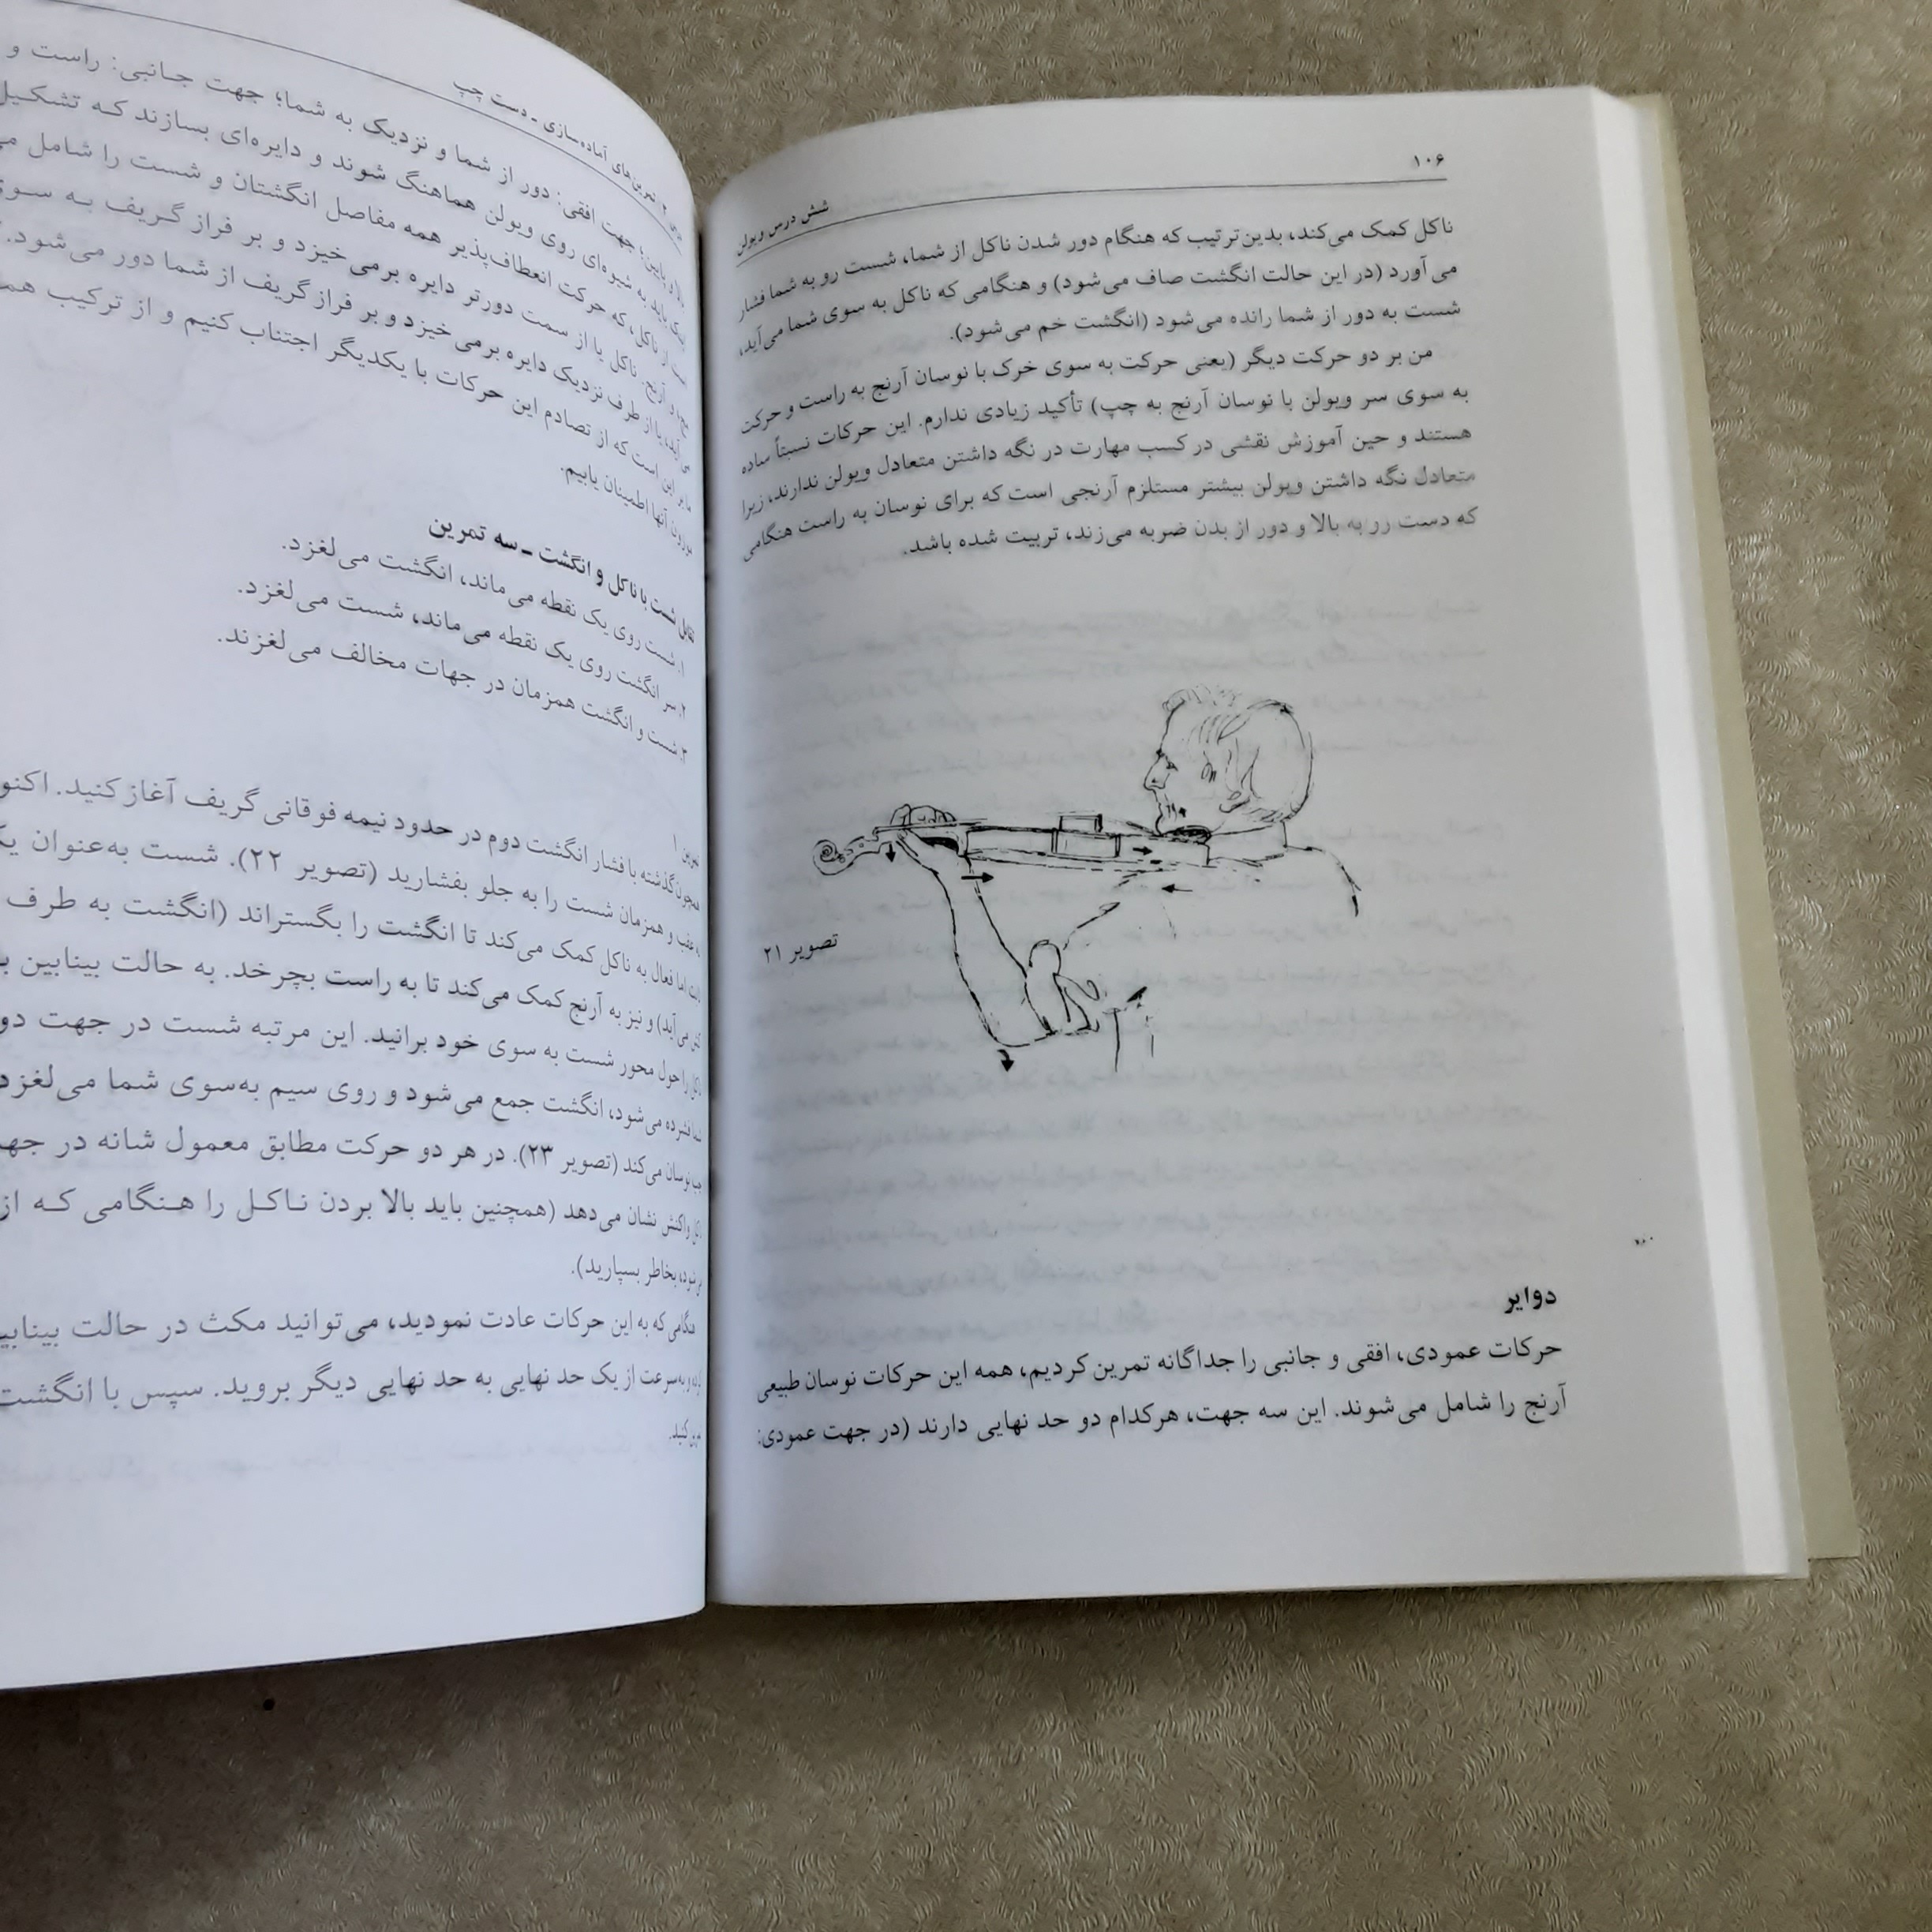 ۱۰۶
شش درس ویولن
ناکل کمک می‌کند، بدین‌ترتیب که هنگام دور شدن ناکل از شما، شست رو به شما فشار
می‌آورد (در این حالت انگشت صاف می‌شود) و هنگامی که ناکل به سوی شما می‌آید،
شست به دور از شما رانده می‌شود (انگشت خم می‌شود).
من بر دو حرکت دیگر (یعنی حرکت به سوی خرک با نوسان آرنج به راست و حرکت
به سوی سر ویولن با نوسان آرنج به چپ) تأکید زیادی ندارم. این حرکات نسبتاً ساده
هستند و حین آموزش نقشی در کسب مهارت در نگه داشتن متعادل ویولن ندارند، زیرا
متعادل نگه داشتن ویولن بیشتر مستلزم آرنجی است که برای نوسان به راست هنگامی
که دست رو به بالا و دور از بدن ضربه می‌زند، تربیت شده باشد.
تصویر ۲۱
دوایر
حرکات عمودی، افقی و جانبی را جداگانه تمرین کردیم، همه این حرکات نوسان طبیعی
آرنج را شامل می‌شوند. این سه جهت، هرکدام دو حد نهایی دارند (در جهت عمودی:
۲. تمرین‌های آماده‌سازی ـ دست چپ
بالا و پایین؛ جهت افقی: دور از شما و نزدیک به شما؛ جهت جانبی: راست و
باید به شیوه‌ای روی ویولن هماهنگ شوند و دایره‌ای بسازند که تشکیل
از ناکل، که حرکت انعطاف‌پذیر همه مفاصل انگشتان و شست را شامل
و آرنج. ناکل یا از سمت دورتر دایره برمی‌خیزد و بر فراز گریف به سوی
آید، یا از طرف نزدیک دایره برمی‌خیزد و بر فراز گریف از شما دور می‌شود.
این است که از تصادم این حرکات با یکدیگر اجتناب کنیم و از ترکیب
موزون آنها اطمینان یابیم.
تقابل شست با ناکل و انگشت ـ سه تمرین
۱. شست روی یک نقطه می‌ماند، انگشت می‌لغزد.
۲. سر انگشت روی یک نقطه می‌ماند، شست می‌لغزد.
۳. شست و انگشت همزمان در جهات مخالف می‌لغزند.
تمرین ۱
همچون گذشته با فشار انگشت دوم در حدود نیمه فوقانی گریف آغاز کنید. اکنون
به عقب و همزمان شست را به جلو بفشارید (تصویر ۲۲). شست به‌عنوان
اما فعال به ناکل کمک می‌کند تا انگشت را بگستراند (انگشت به طرف
می‌آید) و نیز به آرنج کمک می‌کند تا به راست بچرخد. به حالت بینابین
ناکل را حول محور شست به سوی خود برانید. این مرتبه شست در جهت
شما فشرده می‌شود، انگشت جمع می‌شود و روی سیم به‌سوی شما می‌لغزد
نوسان می‌کند (تصویر ۲۳). در هر دو حرکت مطابق معمول شانه در
واکنش نشان می‌دهد (همچنین باید بالا بردن ناکل را هنگامی که از
بخاطر بسپارید).
هنگامی که به این حرکات عادت نمودید، می‌توانید مکث در حالت
و به سرعت از یک حد نهایی به حد نهایی دیگر بروید. سپس با انگشت
کنید.